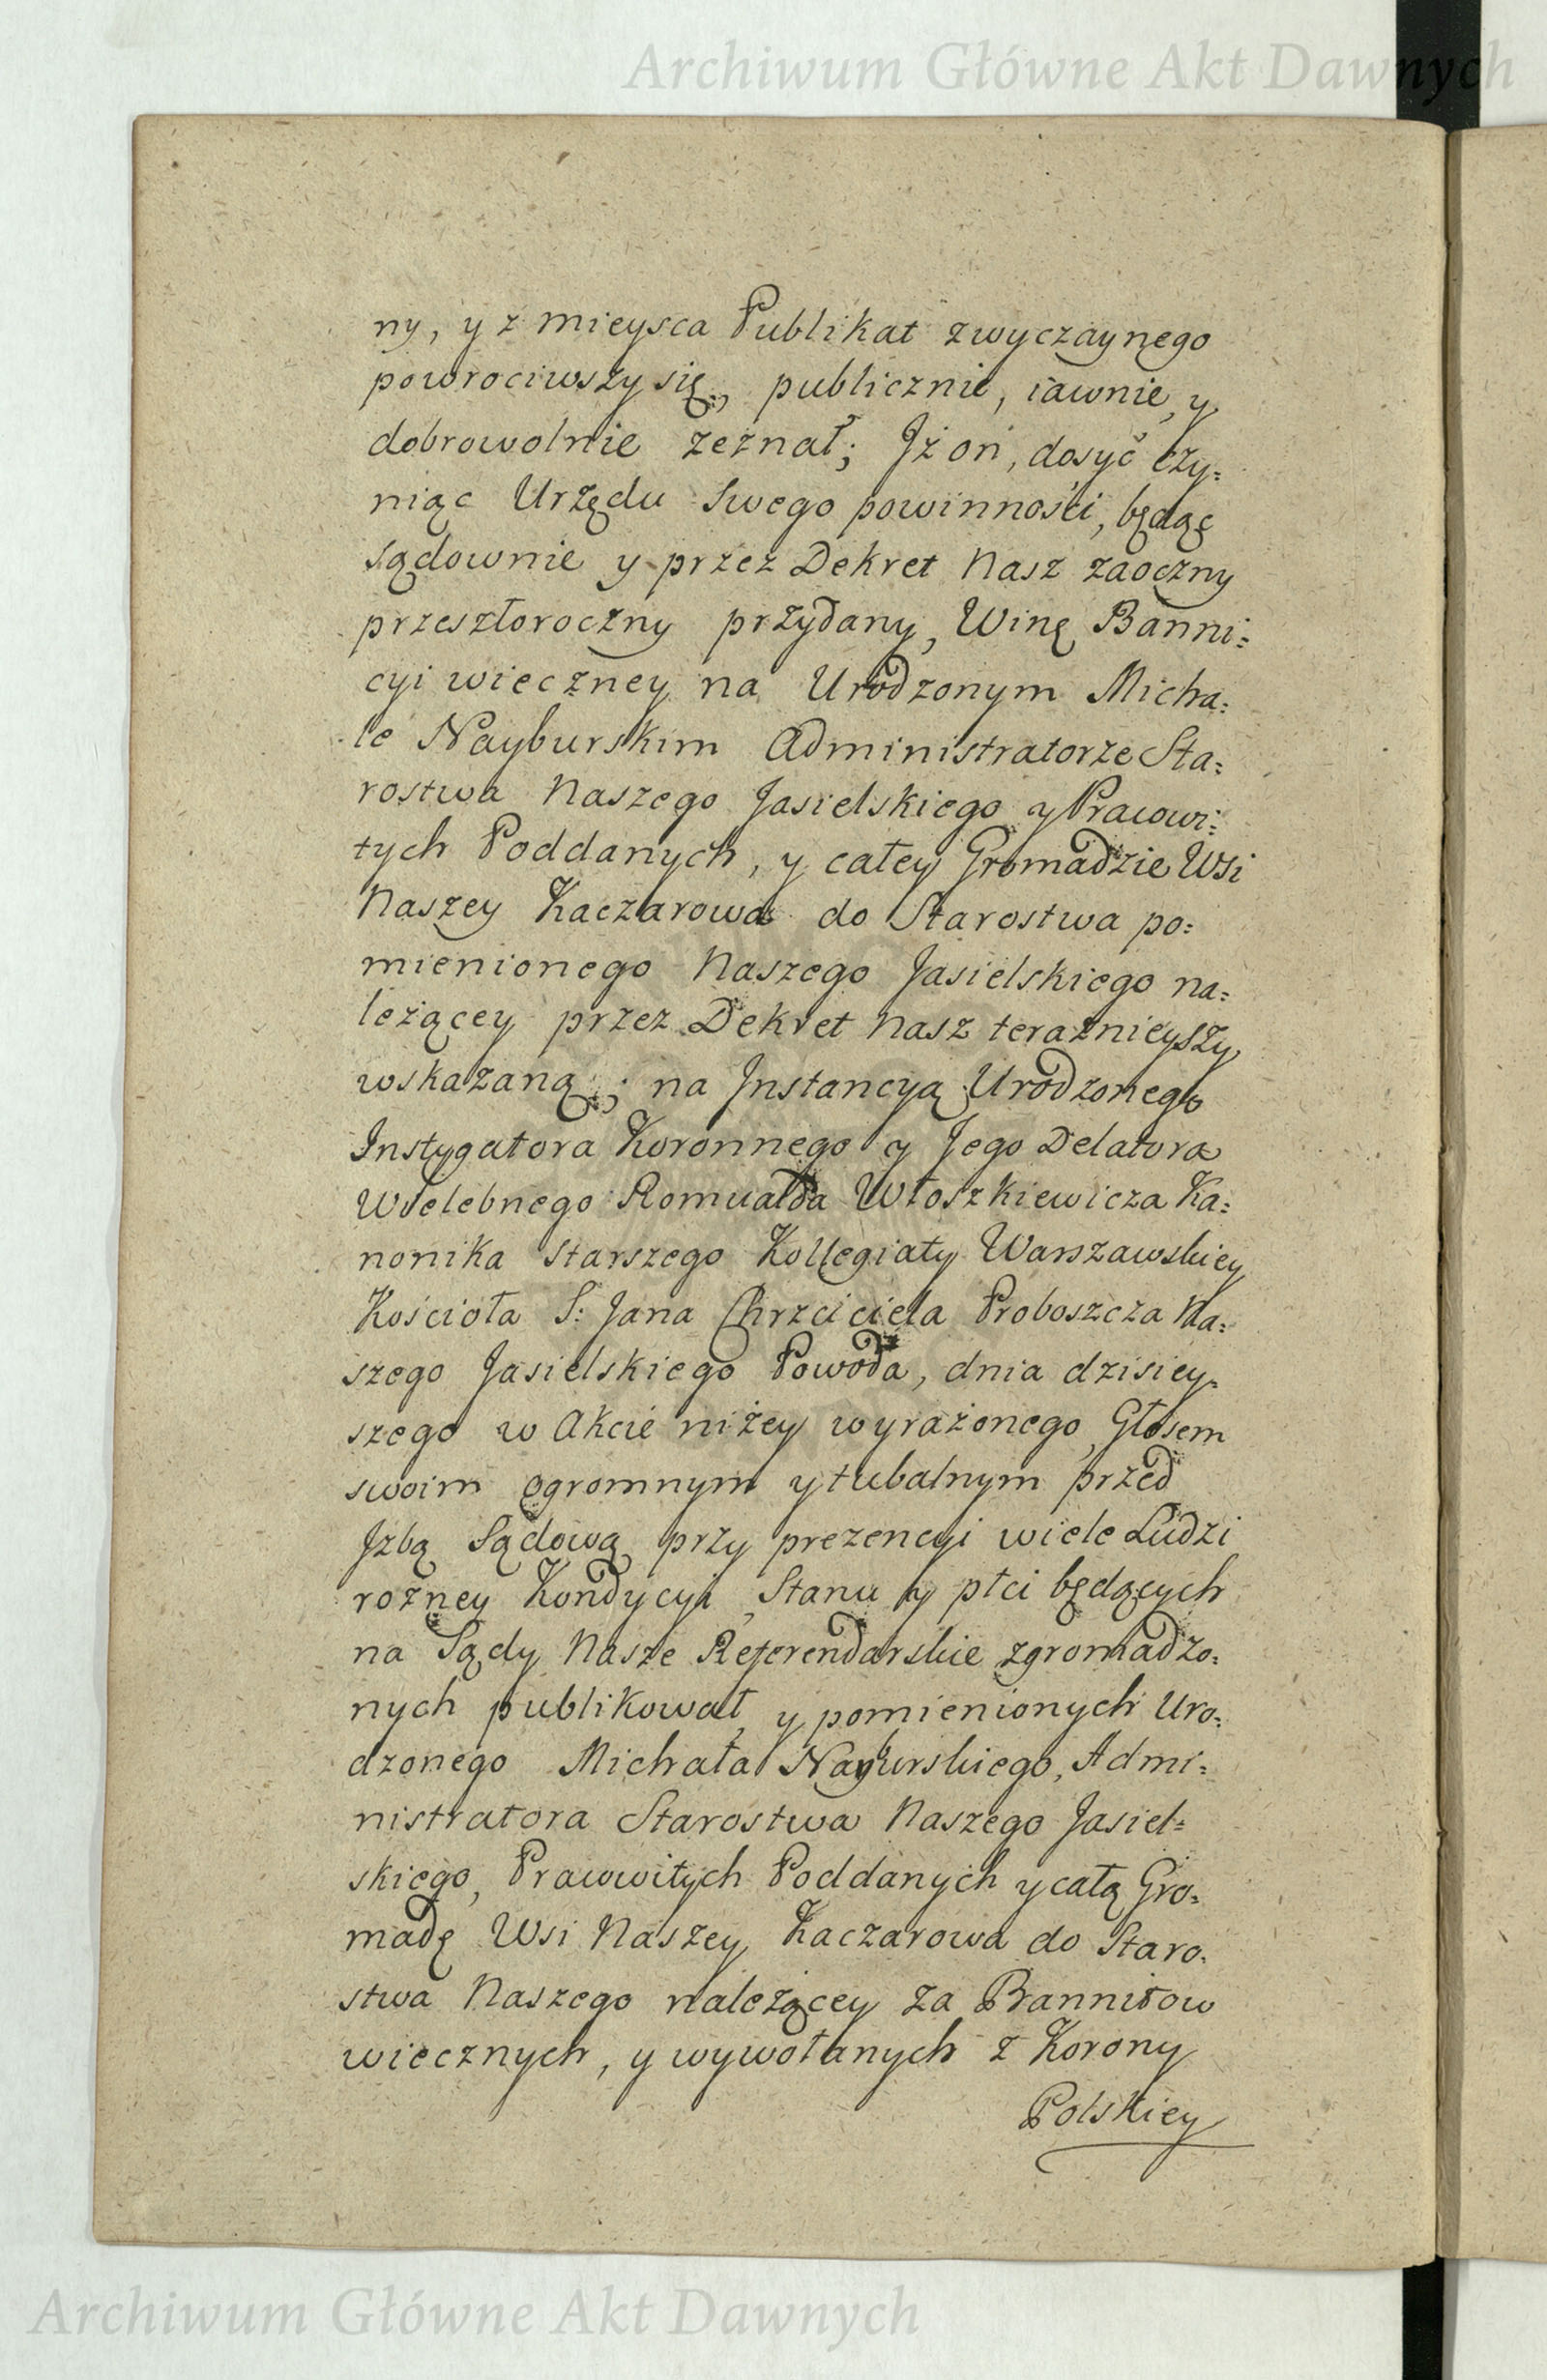 Archiwum Główne Akt Dawnych
ny, y z mieysca Publikat zwyczaynego
powrociwszy się, publicznie, iawnie, y
dobrowolnie zeznał; Jż on, dosyć czy:
niąc Urzędu Swego powinności, będąc
sądownie y przez Dekret Nasz zaoczny
przeszłoroczny przydany, Winę Banni:
cyi wieczney na Urodzonym Micha:
le Nayburskim Administratorze Sta:
rostwa Naszego Jasielskiego y Pracowi:
tych Poddanych, y całey Gromadzie Wsi
Naszey Kaczarowa do Starostwa po:
mienionego Naszego Jasielskiego na:
leżącey przez Dekret Nasz teraznieyszy
wskazaną; na Jnstancyą Urodzonego
Instygatora Koronnego y Jego Delatora
Wielebnego Romualda Włoszkiewicza Ka:
nonika Starszego Kollegiaty Warszawskiey
Kościoła S: Jana Chrzciciela Proboszcza Na:
szego Jasielskiego Powoda, dnia dzisiey:
szego w Akcie niżey wyrażonego, Głosem
swoim ogromnym y tubalnym przed
Jzbą Sądową przy prezencyi wiele Ludzi
rożney Kondycyi, Stanu y płci będących
na Sądy Nasze Referendarskie zgromadzo:
nych publikował, y pomienionych Uro:
dzonego Michała Nayburskiego, Admi:
nistratora Starostwa Naszego Jasiel:
skiego, Pracowitych Poddanych y całą Gro:
madę Wsi Naszey Kaczarowa do Staro:
stwa Naszego należącey za Bannitow
wiecznych, y wywołanych z Korony
Polskiey
Archiwum Główne Akt Dawnych